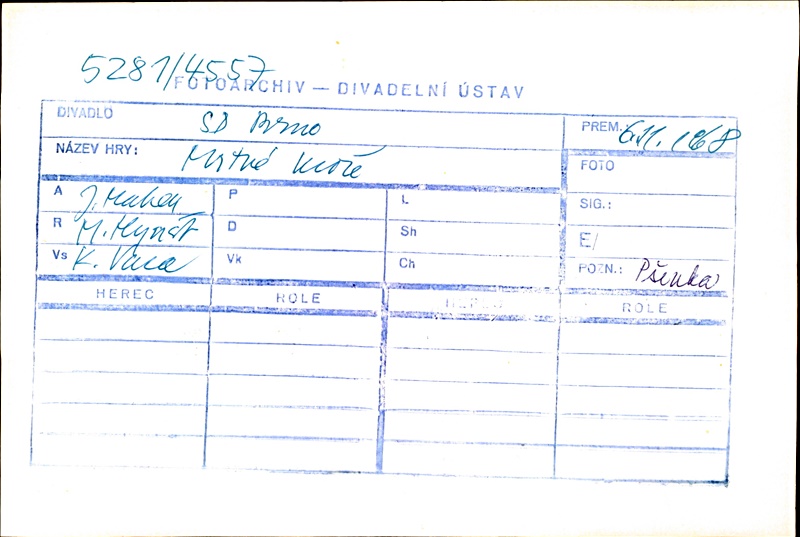 5281/4557
FOTOARCHIV — DIVADELNÍ ÚSTAV
DIVADLO SD Brno
PREM.: 6.11.1968
NÁZEV HRY: Mrtvé moře
FOTO
A J. Mahen P L SIG.:
R M. Hynšt D Sh E/
Vs K. Vaca Vk Ch POZN.: Pšenka
HEREC ROLE HEREC ROLE